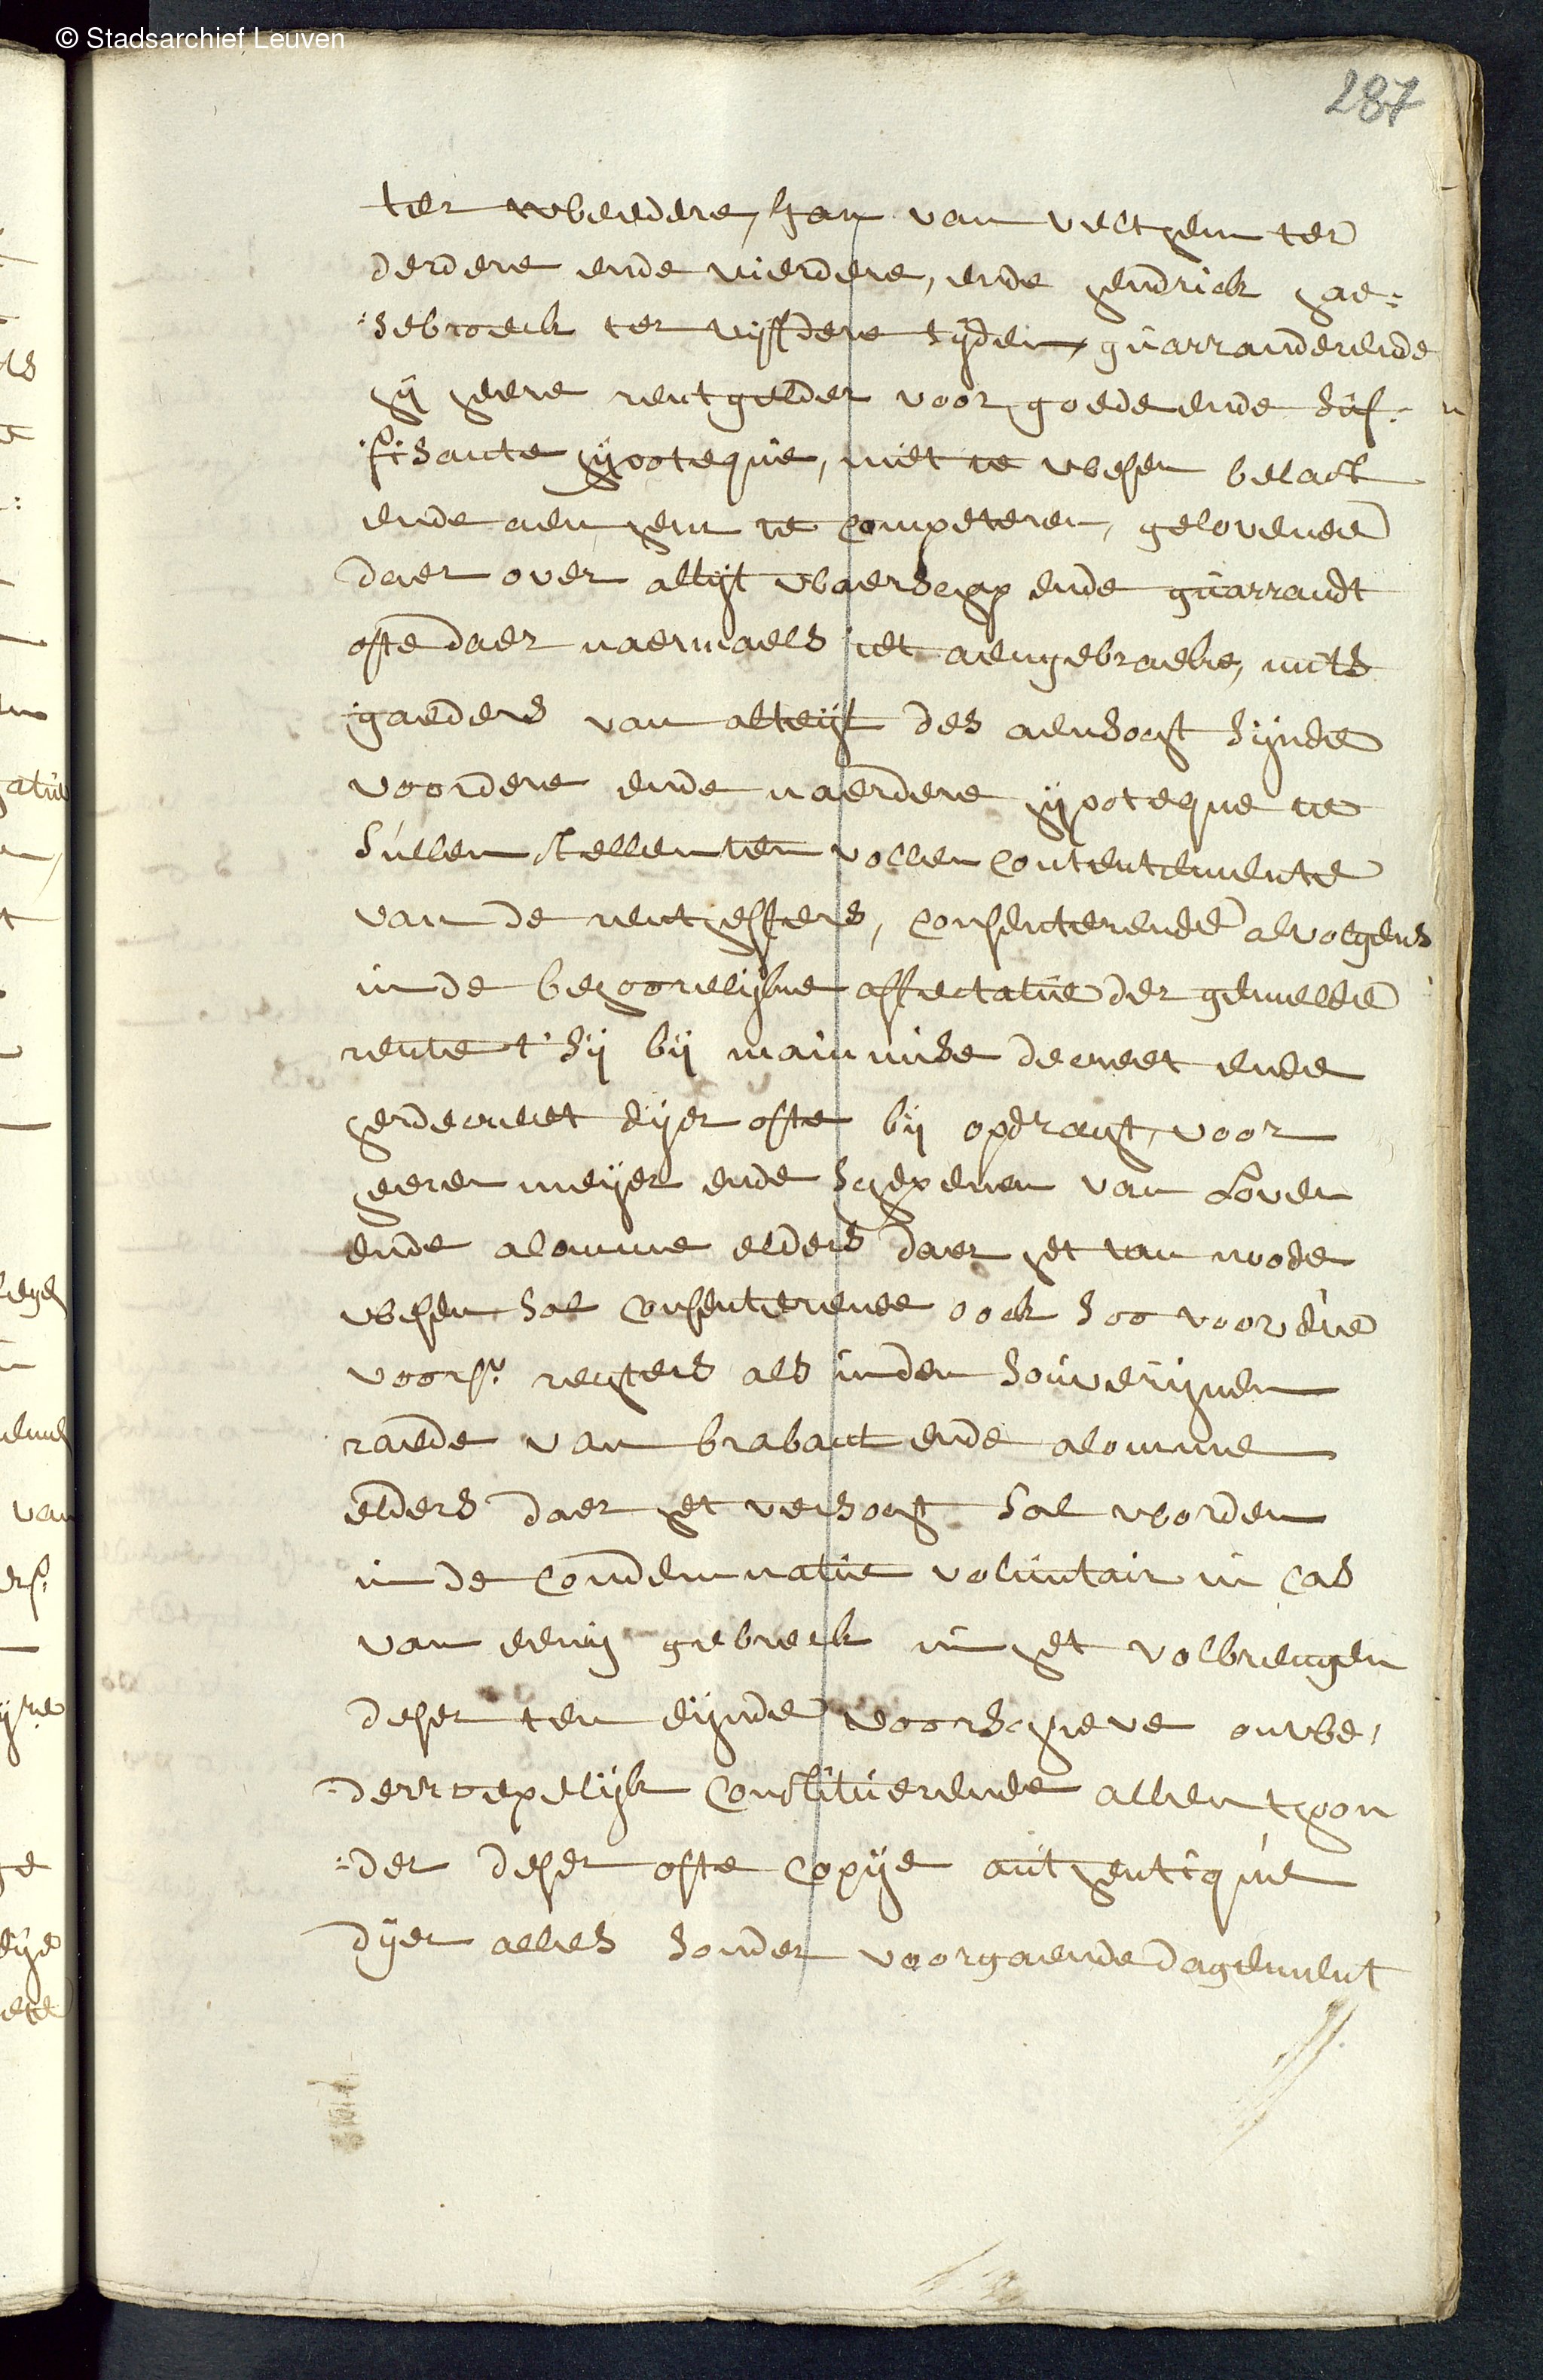 © Stadsarchief Leuven
287
ter tweedere, Jan van Velthem ter
derdere ende vierdere, ende hendrick hae:
:sebroeck ter vijffdere sijden, guarranderende
hij heere rentgelder voor goede ende suf:
:fisante hijpoteque, niet te wesen belast
ende aen hem te competeren, gelovende
daer over altijt waerschap ende guarrandt
ofte daer naermaels iet aengebraeke, mits
gaeders van alteijt des aensocht sijnde
voordere ende naerdere hijpoteque te
sullen stellen ten vollen contentemente
van de rentheffers, consenterende alvolgens
in de behoorelijke affectatie der gemelde
rente t'sij bij mainmise decreet ende
herdecreet dijer ofte bij opdracht, voor
heeren meijer ende schepenen van Loven
ende alomme elders daer het van noode
wesen sal consenterende oock soo voor die
voors: rechters als in den souverijnen
raede van brabant ende alomme
elders daer het versocht sal worden
in de condemnatie voluntair in cas
van eenig gebreck in het volbrengen
deser ten eijnde voorschreve onwe,
:derroepelijk constituerende allen thoon
:der deser ofte copije authenticque
dijer alles sonder voorgaende dagement